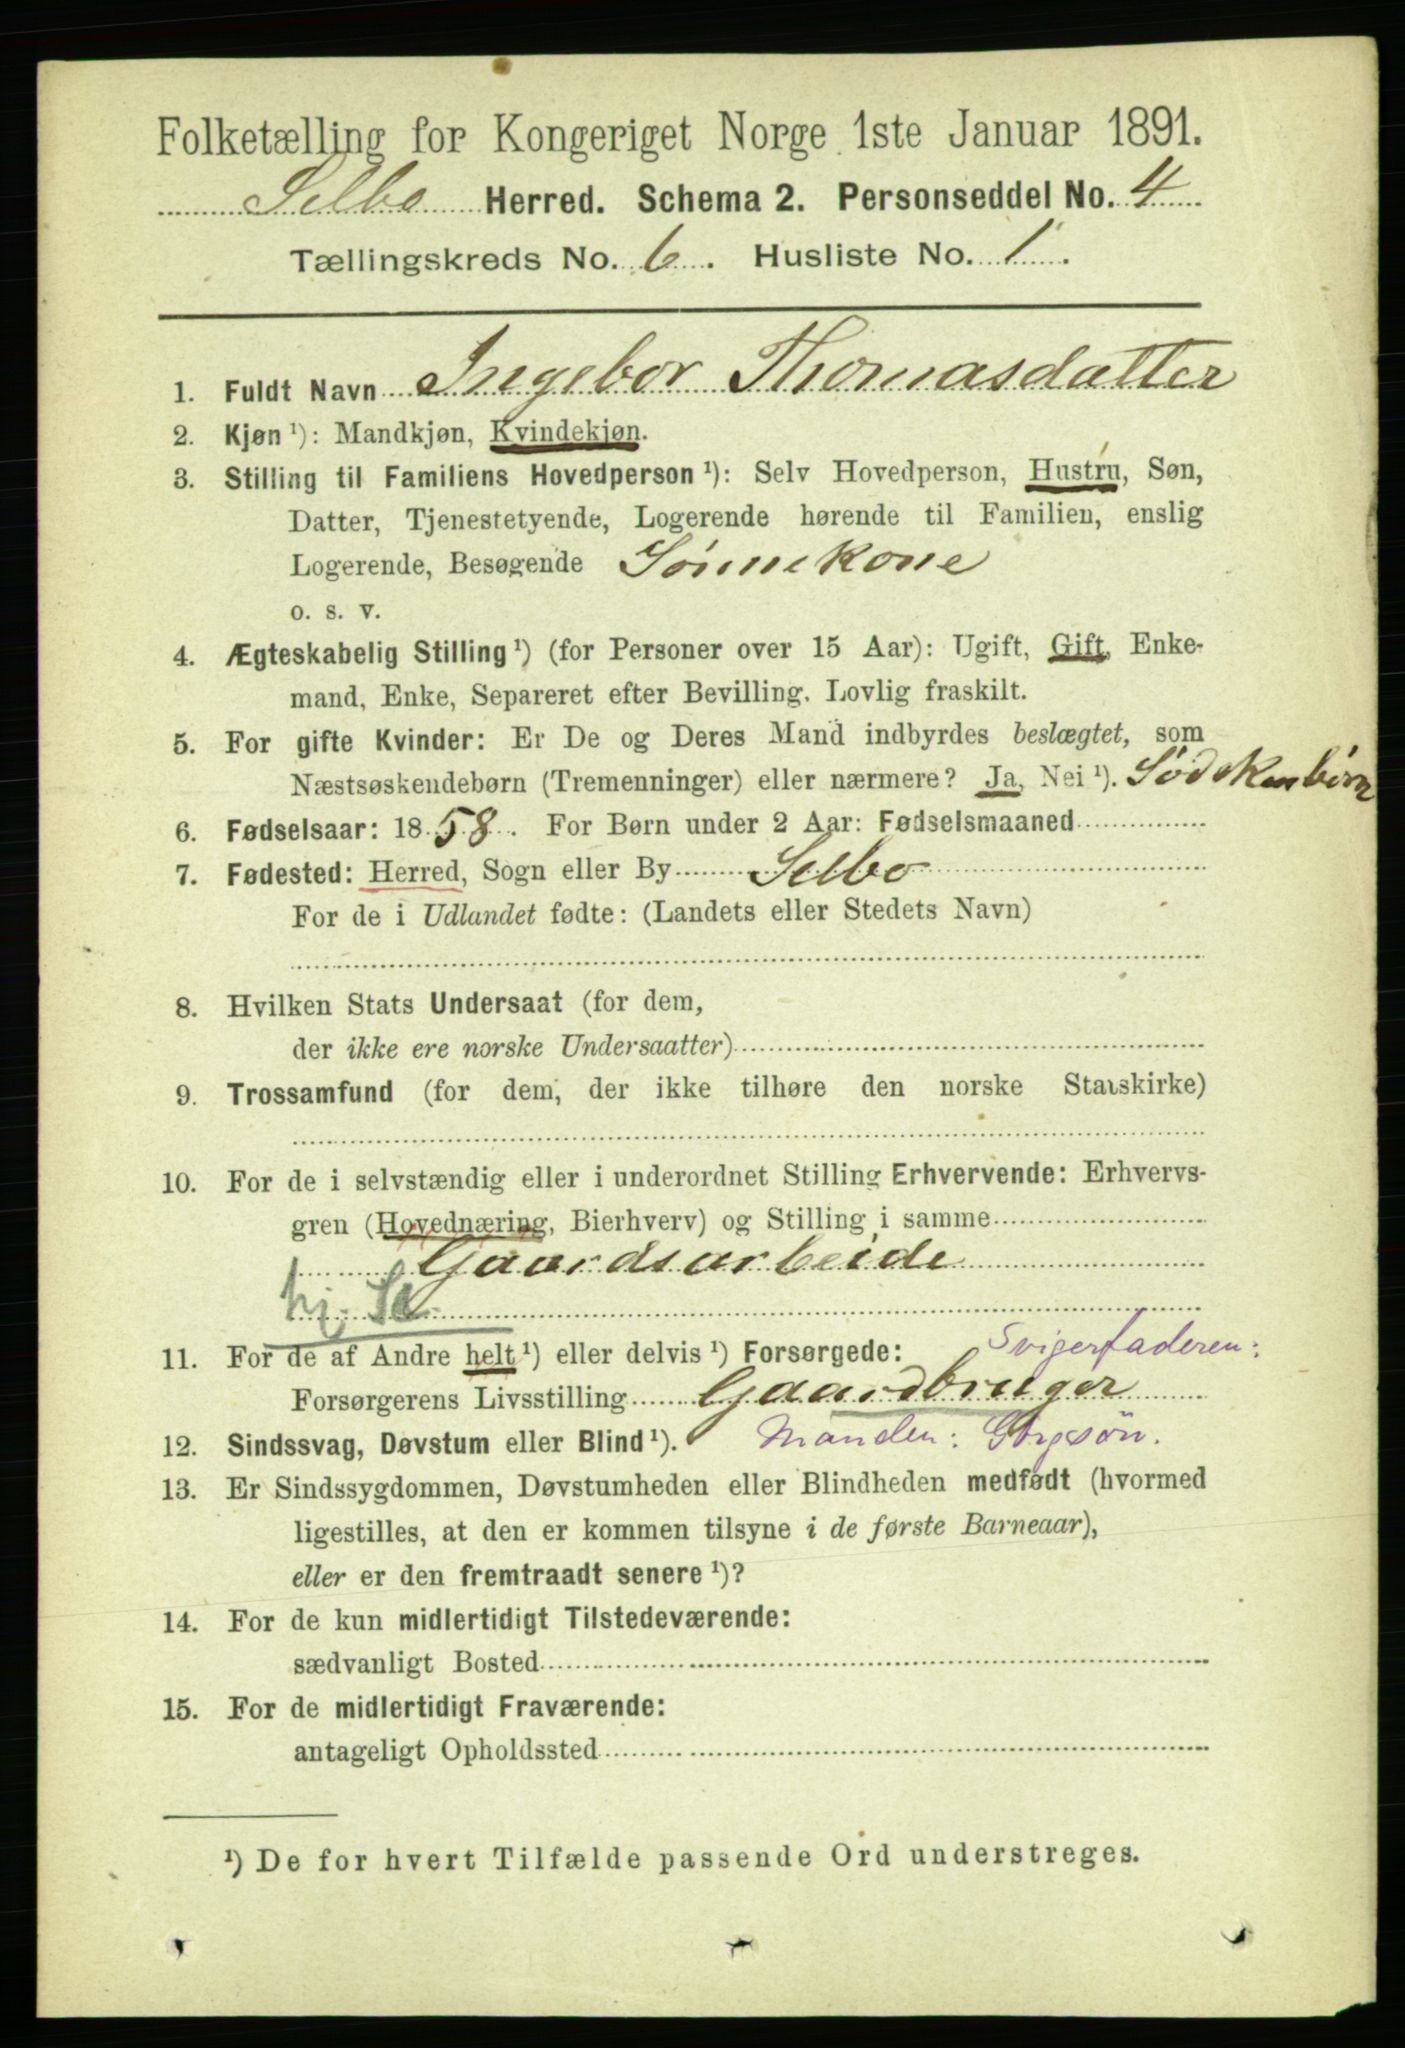 Folketælling for Kongeriget Norge 1ste Januar 1891.
Selbo Herred. Schema 2. Personseddel No. 4
Tællingskreds No. 6. Husliste No. 1.
1. Fuldt Navn Ingebor Thomasdatter
2. Kjøn ¹): Mandkjøn, Kvindekjøn.
3. Stilling til Familiens Hovedperson ¹): Selv Hovedperson, Hustru, Søn,
Datter, Tjenestetyende, Logerende hørende til Familien, enslig
Logerende, Besøgende Sønnekone
o. s. v.
4. Ægteskabelig Stilling ¹) (for Personer over 15 Aar): Ugift, Gift, Enke-
mand, Enke, Separeret efter Bevilling. Lovlig fraskilt.
5. For gifte Kvinder: Er De og Deres Mand indbyrdes beslægtet, som
Næstsøskendebørn (Tremenninger) eller nærmere? Ja, Nei ¹). Sødskenbörn
6. Fødselsaar: 1858. For Børn under 2 Aar: Fødselsmaaned
7. Fødested: Herred, Sogn eller By Selbo
For de i Udlandet fødte: (Landets eller Stedets Navn)
8. Hvilken Stats Undersaat (for dem,
der ikke ere norske Undersaatter)
9. Trossamfund (for dem, der ikke tilhøre den norske Statskirke)
10. For de i selvstændig eller i underordnet Stilling Erhvervende: Erhvervs-
gren (Hovednæring, Bierhverv) og Stilling i samme
Gaardsarbeide
hj.
11. For de af Andre helt ¹) eller delvis ¹) Forsørgede: Svigerfaderen:
Forsørgerens Livsstilling Gaardbruger
12. Sindssvag, Døvstum eller Blind ¹). Manden: Gbrgsön.
13. Er Sindssygdommen, Døvstumheden eller Blindheden medfødt (hvormed
ligestilles, at den er kommen tilsyne i de første Barneaar),
eller er den fremtraadt senere ¹)?
14. For de kun midlertidigt Tilstedeværende:
sædvanligt Bosted
15. For de midlertidigt Fraværende:
antageligt Opholdssted
¹) De for hvert Tilfælde passende Ord understreges.